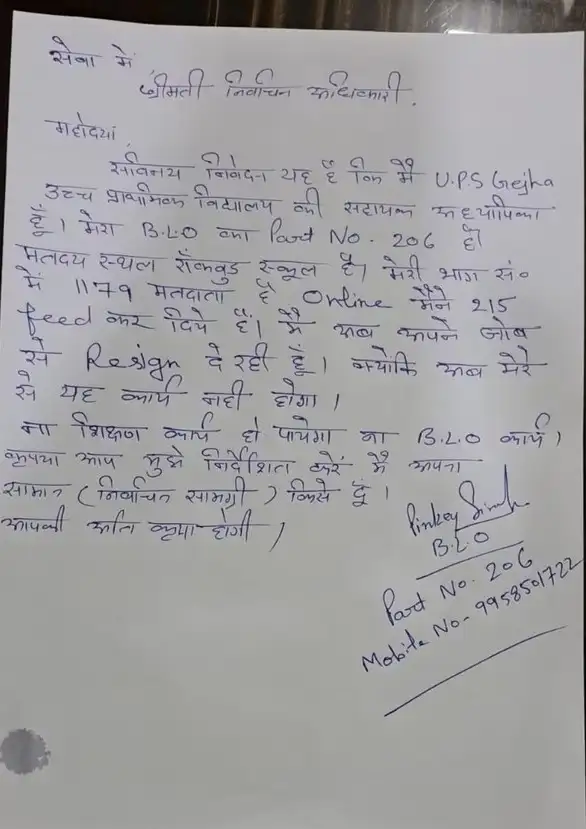 सेवा में
श्रीमती निर्वाचन अधिकारी.
महोदया
सविनय निवेदन यह है कि मैं U.P.S Gejha
उच्च प्राथमिक विद्यालय की सहायक अध्यापिका
हूँ। मेरा B.L.O का Part No. 206 है।
मतदय स्थल रॉकवुड स्कूल है। मेरी भाग सं०
में 1179 मतदाता है Online मैंने 215
feed कर दिये हैं। मैं अब अपने जोब
से Resign दे रही हूँ। क्योंकि अब मेरे
से यह कार्य नही होगा।
ना शिक्षण कार्य हो पायेगा ना B.L.O कार्य।
कृपया आप मुझे निर्देशित करें मैं अपना
सामान (निर्वाचन सामग्री) किसे दूँ।
आपकी अति कृपा होगी।
Pinky Singh
B.L.O
Part No. 206
Mobile No- 9958501722